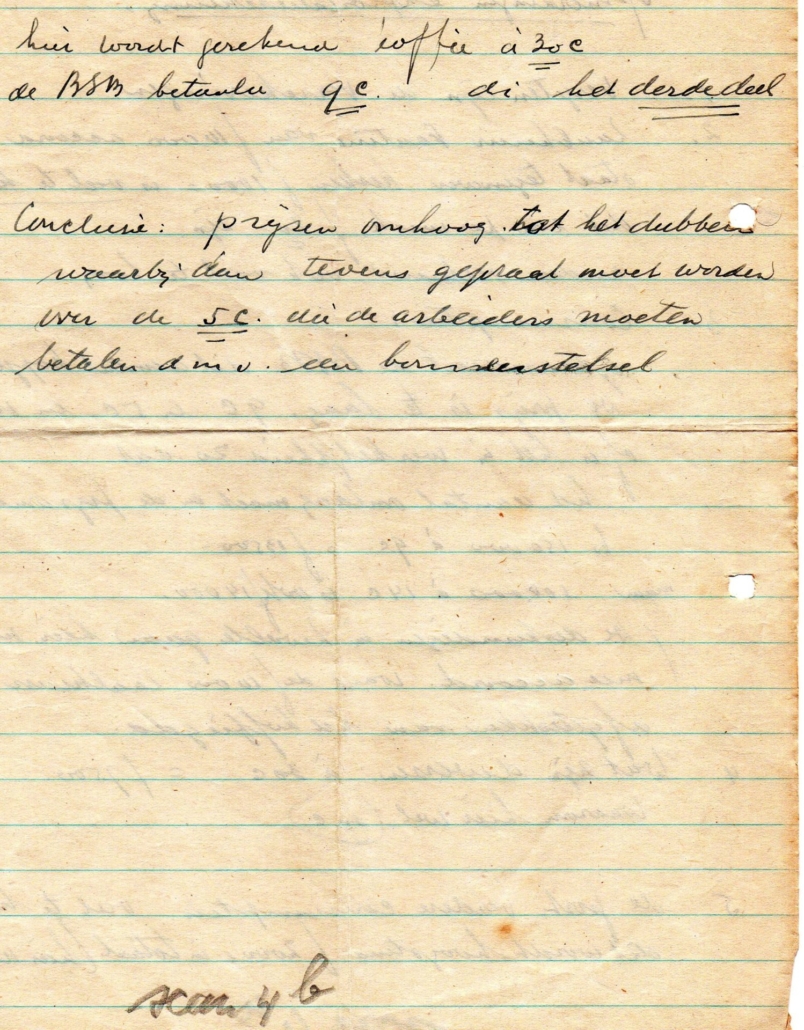 hier wordt gerekend koffie à 30c
de BSB betaalde 9c. di het derdedeel
Conclusie: prijzen omhoog tot het dubbele
waarbij dan tevens gepraat moet worden
over de 5c. die de arbeiders moeten
betalen d m v. een bonnenstelsel.
scan 4 b